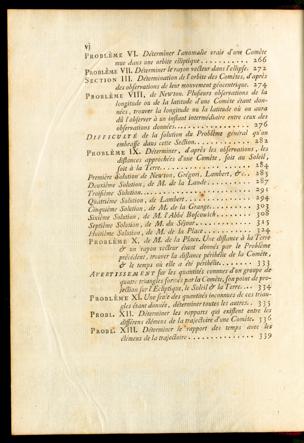 vj
PROBLÈME VI. Déterminer l'anomalie vraie d'une Comète
mue dans une orbite elliptique........... 266
PROBLÈME VII. Déterminer le rayon vecteur dans l'ellipse. 272
SECTION III. Détermination de l'orbite des Comètes, d'après
des observations de leur mouvement géocentrique. 274
PROBLÈME VIII, de Newton. Plusieurs observations de la
longitude ou de la latitude d'une Comète étant don-
nées, trouver la longitude ou la latitude où on aura
dû l'observer à un instant intermédiaire entre ceux des
observations données............... 276
DIFFICULTÉ de la solution du Problème général qu'on
embrasse dans cette Section........... 282
PROBLÈME IX. Déterminer, d'après les observations, les
distances approchées d'une Comète, soit au Soleil,
soit à la Terre................. 284
Première Solution de Newton, Grégori, Lambert, &c.. 283
Deuxième Solution, de M. de la Lande...... 287
Troisième Solution................. 291
Quatrième Solution, de Lambert.......... 294
Cinquième Solution, de M. de la Grange..... 303
Sixième Solution, de M. l'Abbé Boscowich..... 308
Septième Solution, de M. du Séjour........ 315
Huitième Solution, de M. de la Place....... 324
PROBLÈME X, de M. de la Place. Une distance à la Terre
& un rayon vecteur étant donnés par le Problème
précédent, trouver la distance périhélie de la Comète,
& le temps où elle a été périhélie........ 333
AVERTISSEMENT sur les quantités connues d'un groupe de
quatre triangles formés par la Comète, son point de pro-
jection sur l'Écliptique, le Soleil & la Terre.... 334
PROBLÈME XI. Une seize des quantités inconnues de ces trian-
gles étant donnée, déterminer toutes les autres. 335
PROBL. XII. Déterminer les rapports qui existent entre les
différens élémens de la trajectoire d'une Comète. 336
PROBL. XIII. Déterminer le rapport des temps avec les
élémens de la trajectoire............. 339